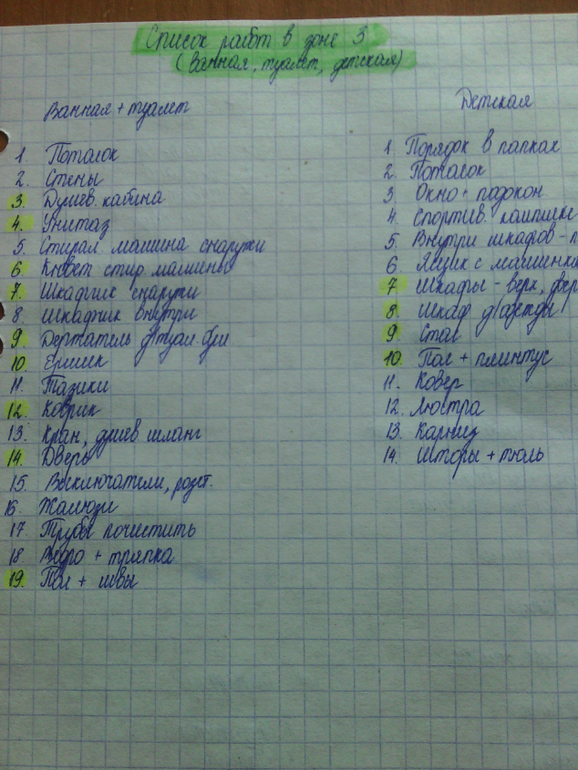 Список работ в зоне 3
(ванная, туалет, детская)
Ванная + туалет
1. Потолок
2. Стены
3. Душев. кабина
4. Унитаз
5. Стирал. машина снаружи
6 Кювет стир. машины
7. Шкафчик снаружи
8. Шкафчик внутри
9. Держатель д/туал. бум
10. Ершик
11. Тазики
12. Коврик
13. Кран, душев шланг
14. Дверь
15. Выключатели, розет.
16. Жалюзи
17. Трубы почистить
18 Ведро + тряпка
19. Пол + швы
Детская
1. Порядок в папках
2. Потолок
3. Окно + подокон.
4. Спортив.
5. Внутри шкафов -
6. Ящик с
7. Шкафы - верх,
8. Шкаф д/одежды
9. Стол
10. Пол + плинтус
11. Ковер
12. Люстра
13. Карниз
14. Шторы + тюль